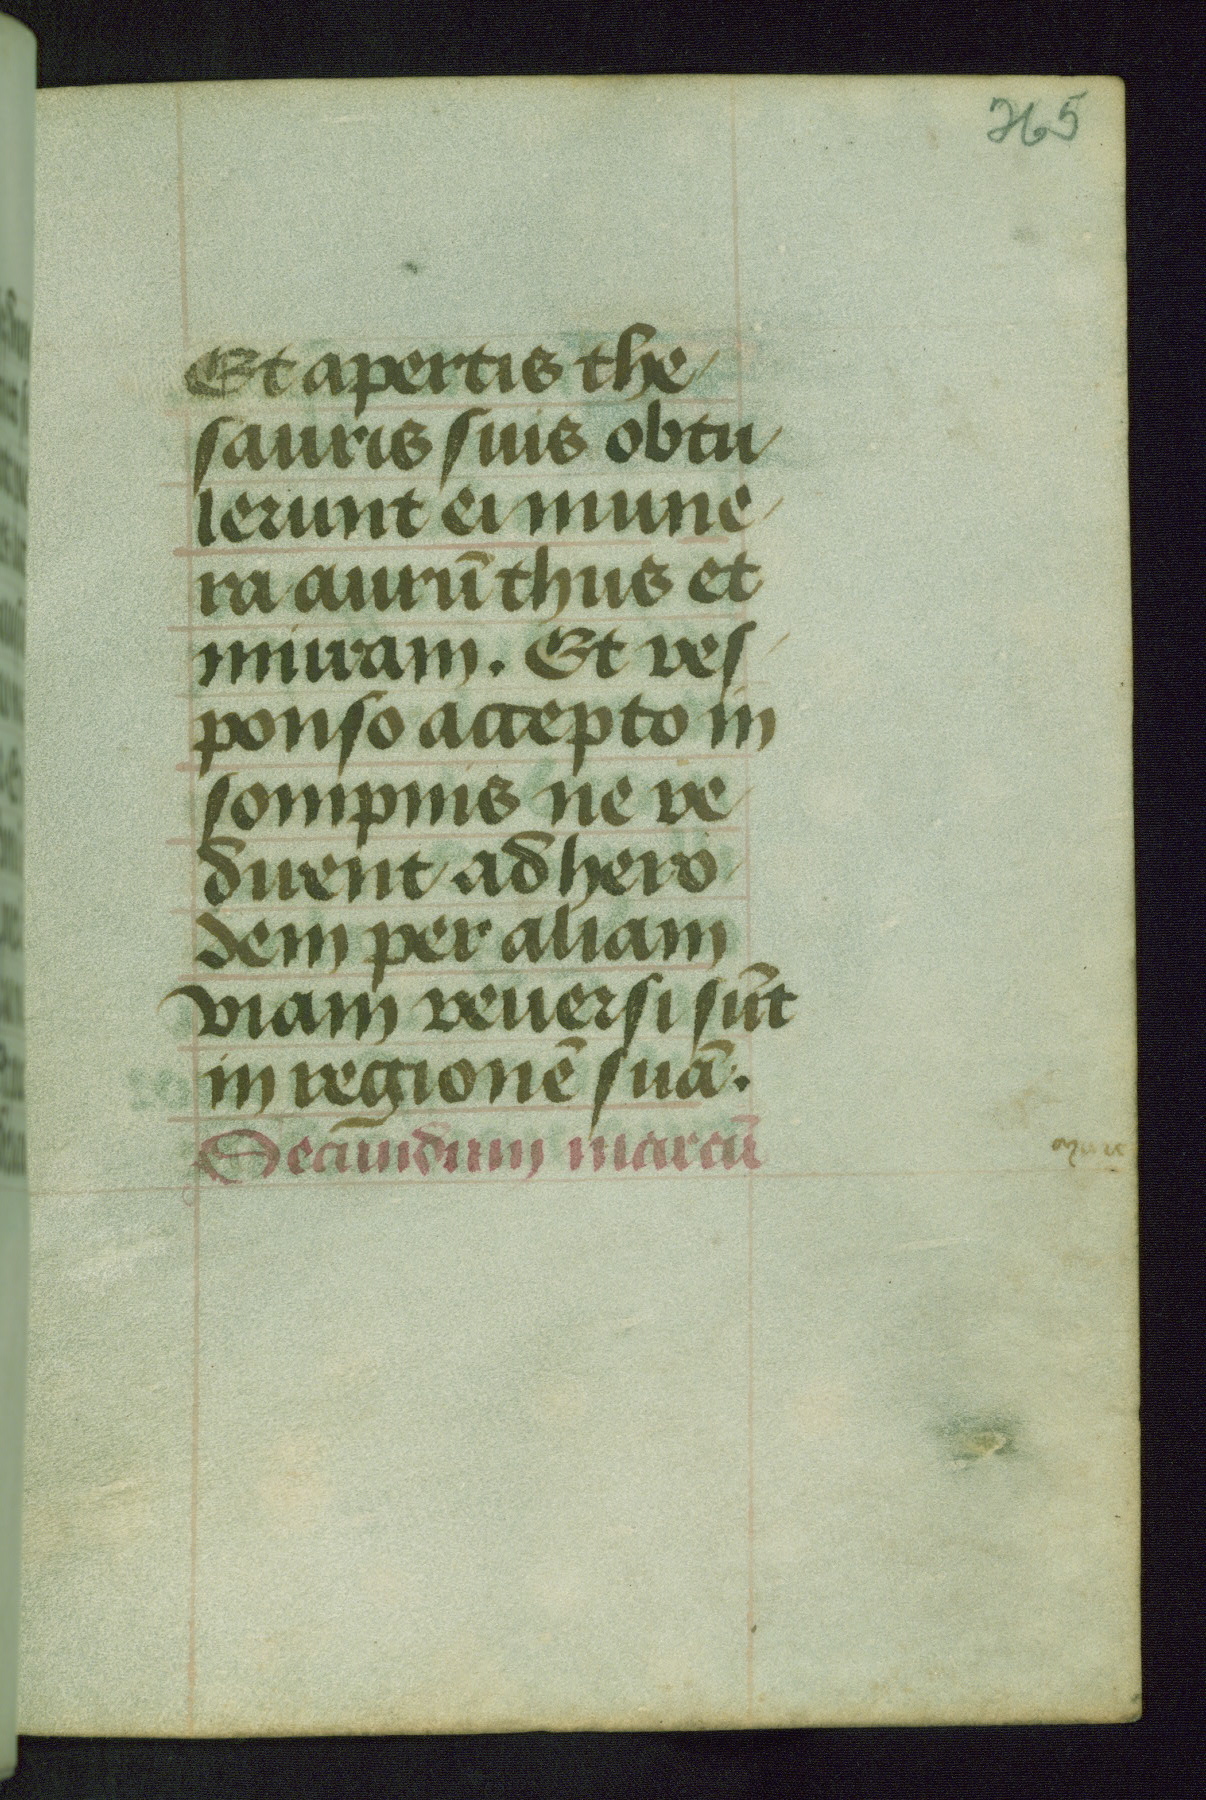 265
Et apertis the
sauris suis obtu
lerunt ei mune
ra aurū thus et
mirram. Et res
ponso accepto in
sompnis ne re
dirent ad hero
dem per aliam
viam reuersi sūt
in regionē suā.
Secundum marcū